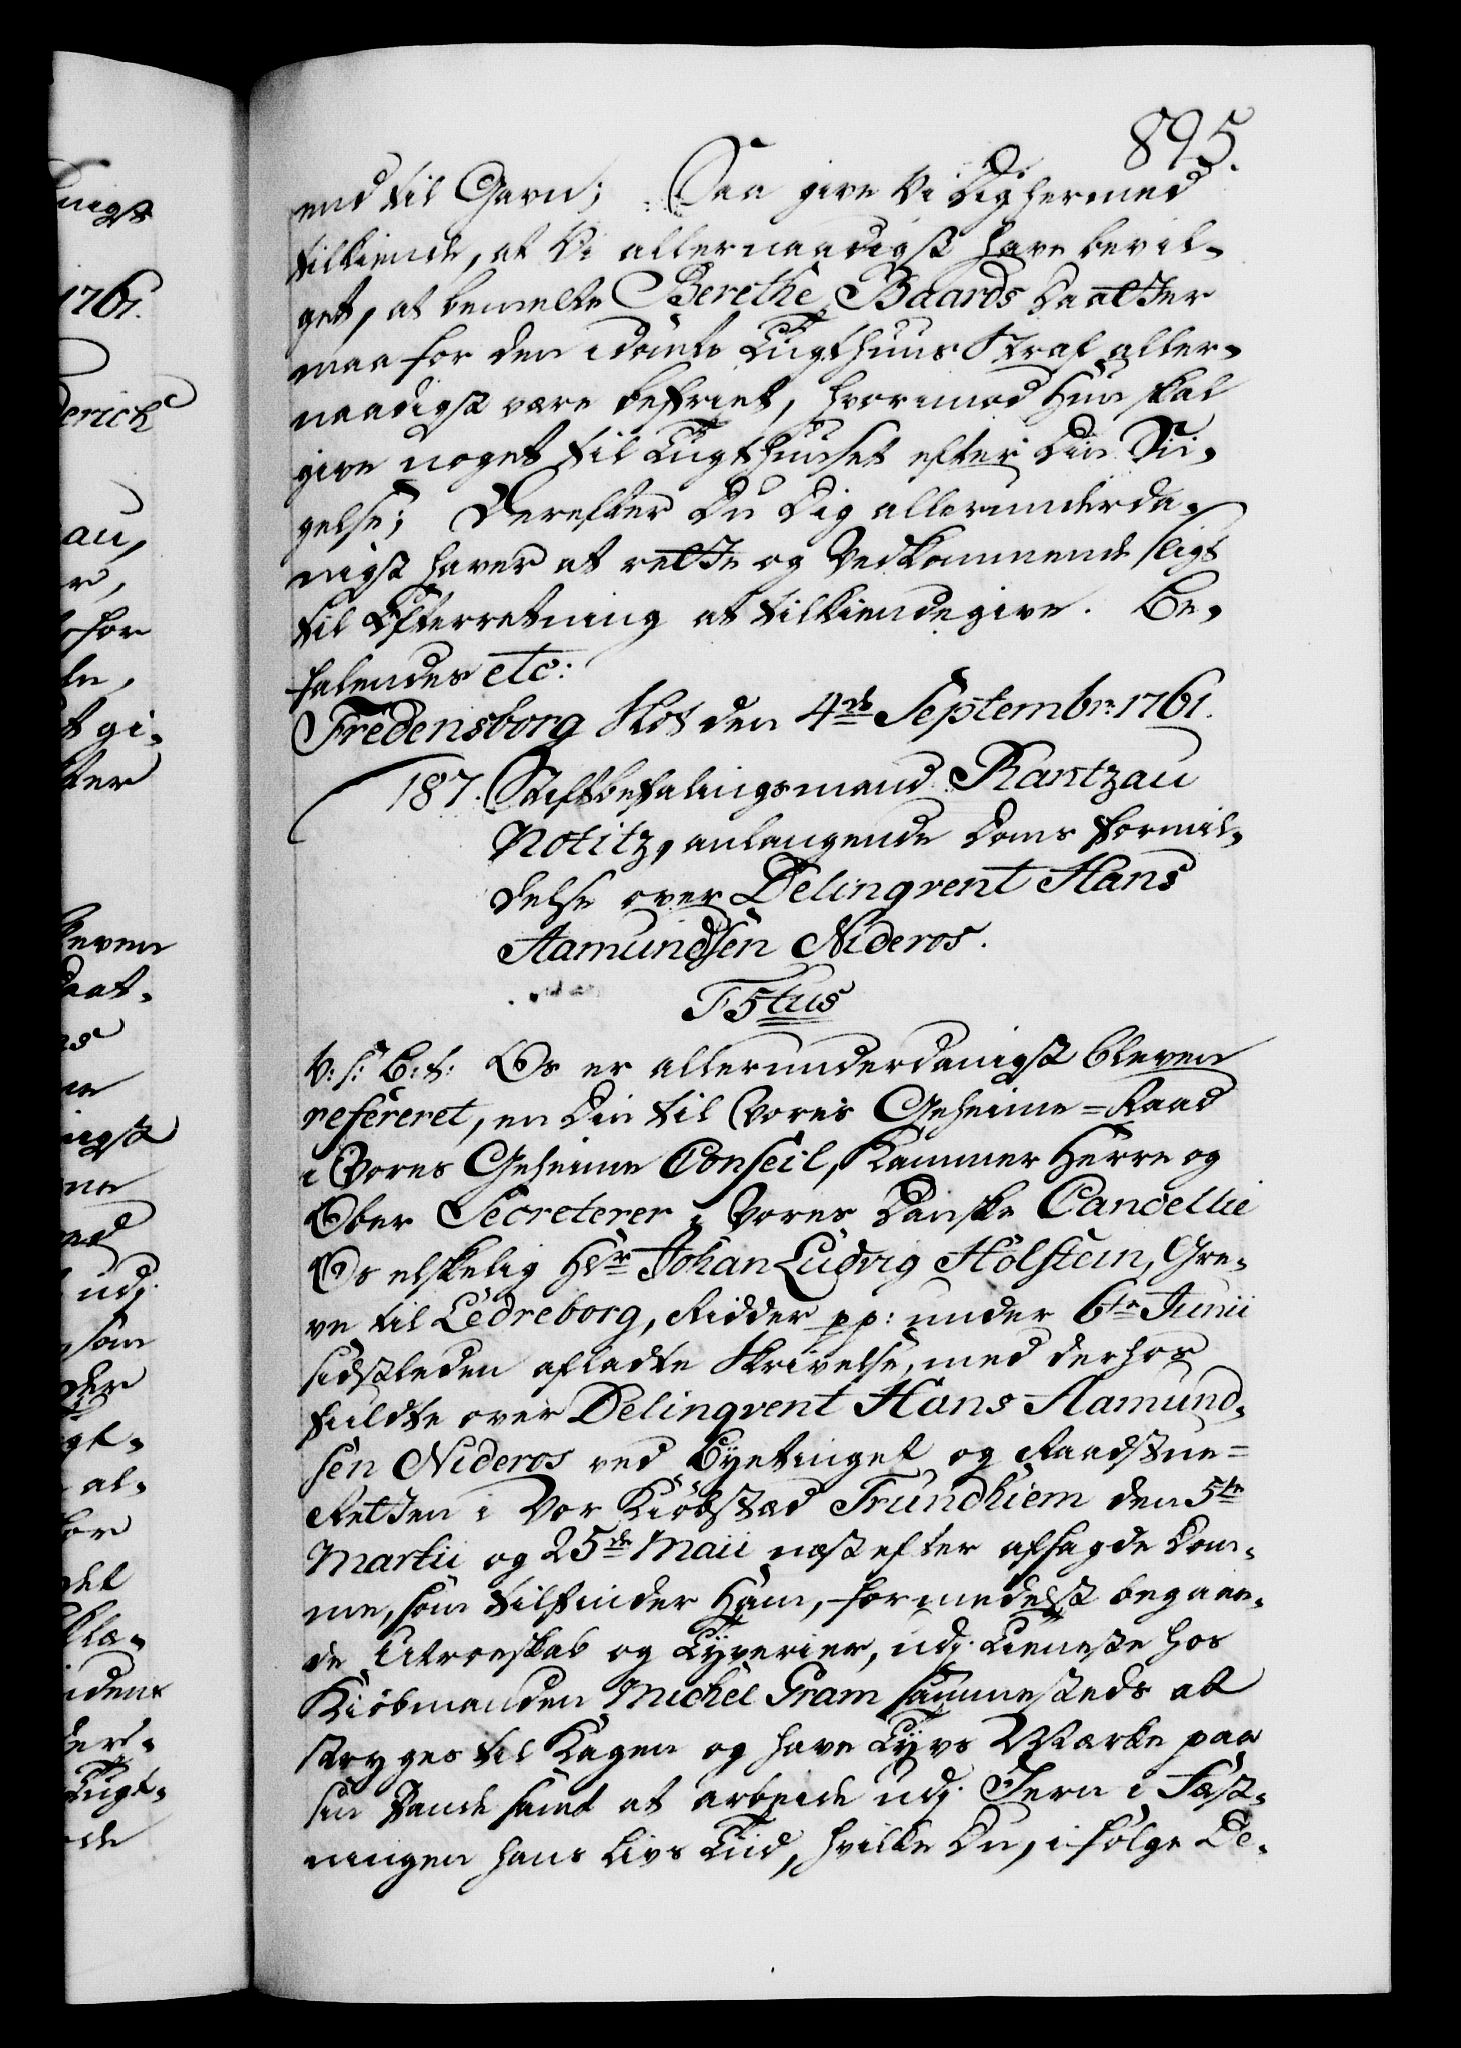 895.
end til Gavn; Saa give Vi Dig hermed
tilkiende, at Vi allernaadigst have bevil-
get, at bemelte Berethe Baards Daatter
maa for den idömte Tugthuus Straf aller-
naadigst være befriet, hvorimod Hun skal
give noget til Tugthuuset efter Din Sii-
gelse; Derefter Du Dig allerunderda-
nigst haver at rette og Vedkommende sligt
til Efterretning at tilkiendegive. Be-
falendes etc:
Fredensborg Slot den 4de Septembr: 1761.
187. Stiftbefalingsmand Rantzau
Notitz, anlangende Doms Formil-
delse over Delinqvent Hans
Aamundsen Nideros.
F5tus
V: S: B: T: Os er allerunderdanigst bleven
refereret, en Din til Vores Geheime=Raad
i Vores Geheime Conseil, Kammer Herre og
Ober Secreterer i Vores Danske Cancellie
Os elskelig Hr Johan Ludvig Holstein, Gre-
ve til Ledreborg, Ridder pp: under 6te Junii
sidstleden afladte Skrivelse, med derhos
fuldte over Delinqvent Hans Aamund-
sen Nideros ved Byetinget og Raadstue=
Retten i Vor Kiöbstæd Trundhiem den 5te
Martii og 25de Maii næstefter afsagde Dom-
me, som tilfinder Ham, formedelst begaae-
de Utroeskab og Tyverier, udj Tieneste hos
Kiöbmanden Michel Gram sammesteds at
stryges til Kagen og have Tyvs Mærke paa
sin Pande samt at arbeide udj Jern i Fæst-
ningen hans Livs Tiid, hvilke Du, i fölge De-